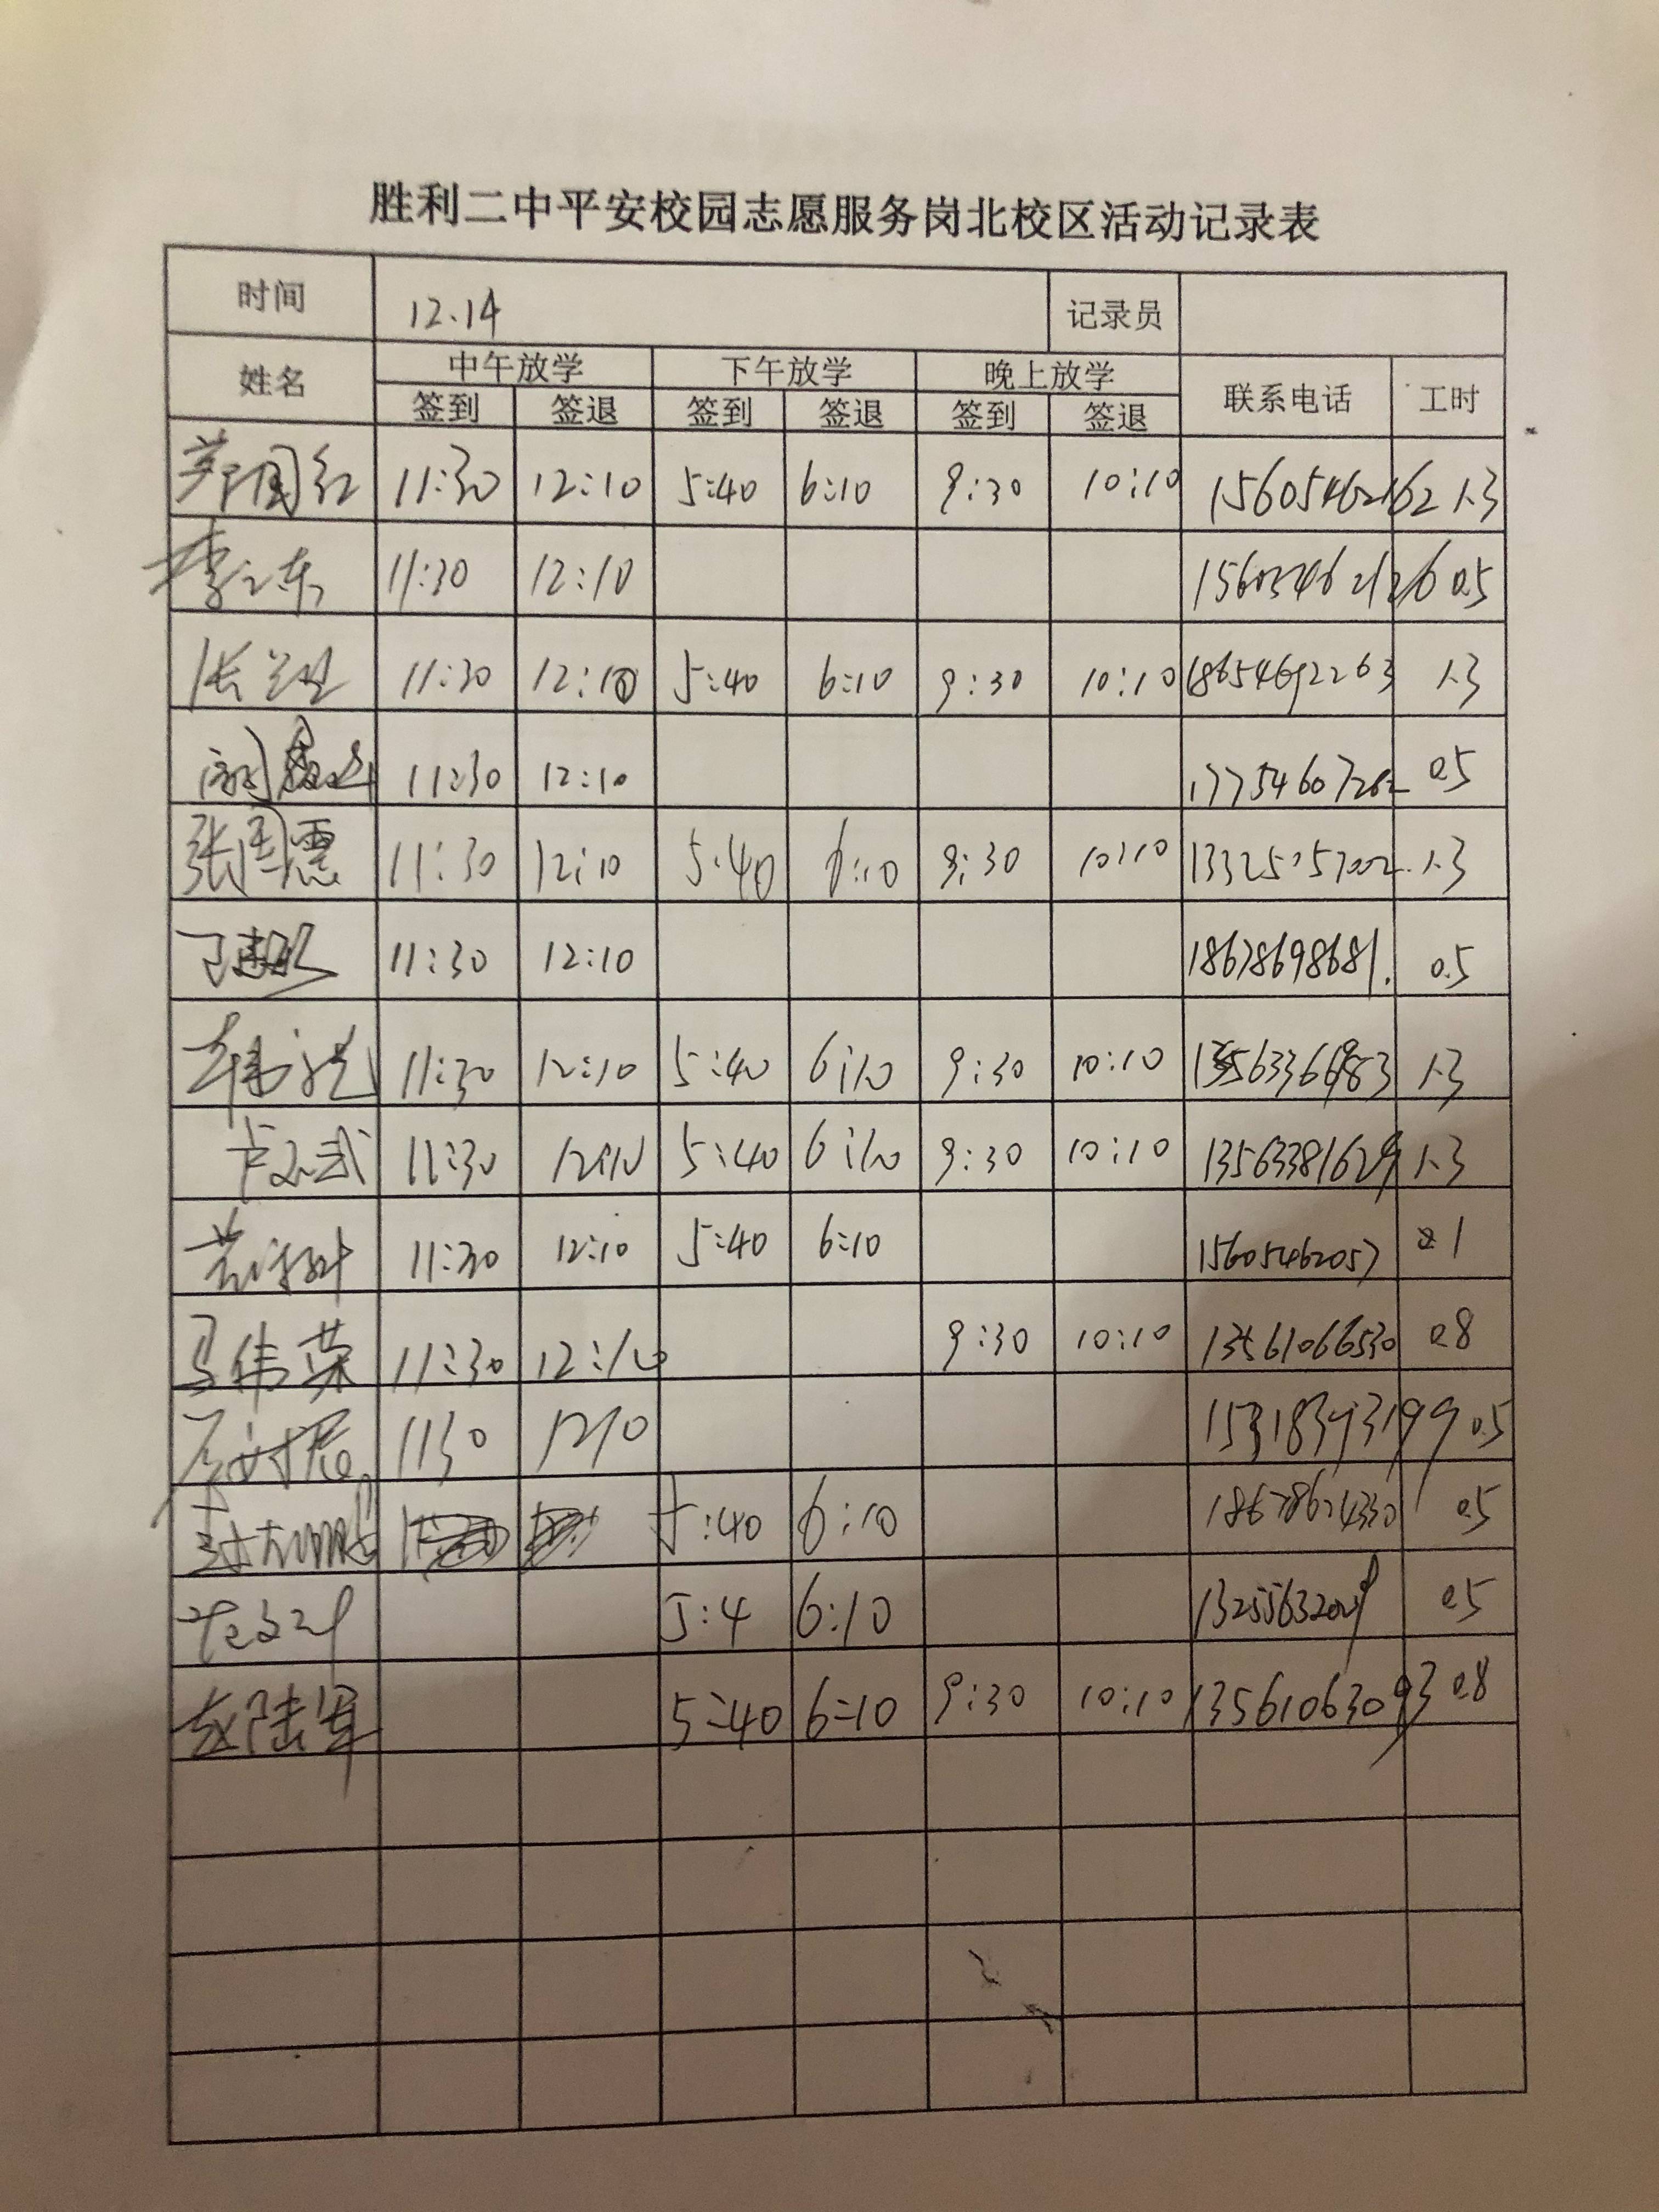 胜利二中平安校园志愿服务岗北校区活动记录表
时间 12.14 记录员
姓名 中午放学 下午放学 晚上放学 联系电话 工时
签到 签退 签到 签退 签到 签退
国红 11:30 12:10 5:40 6:10 9:30 10:10 15605462162 1.3
李 东 11:30 12:10 0.5
张 11:30 12:10 5:40 6:10 9:30 10:10 18654692263 1.3
11:30 12:10 17754607282 0.5
张国震 11:30 12:10 5:40 6:10 9:30 10:10 1.3
丁 11:30 12:10 18678698681. 0.5
11:30 12:10 5:40 6:10 9:30 10:10 1.3
卢 武 11:30 12:10 5:40 6:10 9:30 10:10 13563381629 1.3
11:30 12:10 5:40 6:10 15605462057 1
马伟荣 11:30 12:10 9:30 10:10 13561066530 0.8
1130 1210 0.5
5:40 6:10 18678624330 0.5
5:4 6:10 0.5
赵陆军 5:40 6:10 9:30 10:10 13561063093 0.8